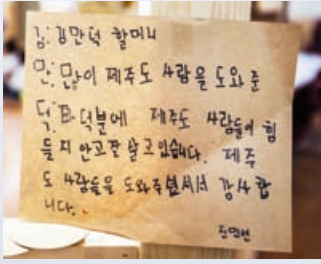 김: 김만덕 할머니
만: 많이 제주도 사람을 도와준
덕: 덕분에 제주도 사람들이 힘
들지 안고 잘 살고 있습니다. 제주
도 사람들을 도와주셔서 감사합
니다.